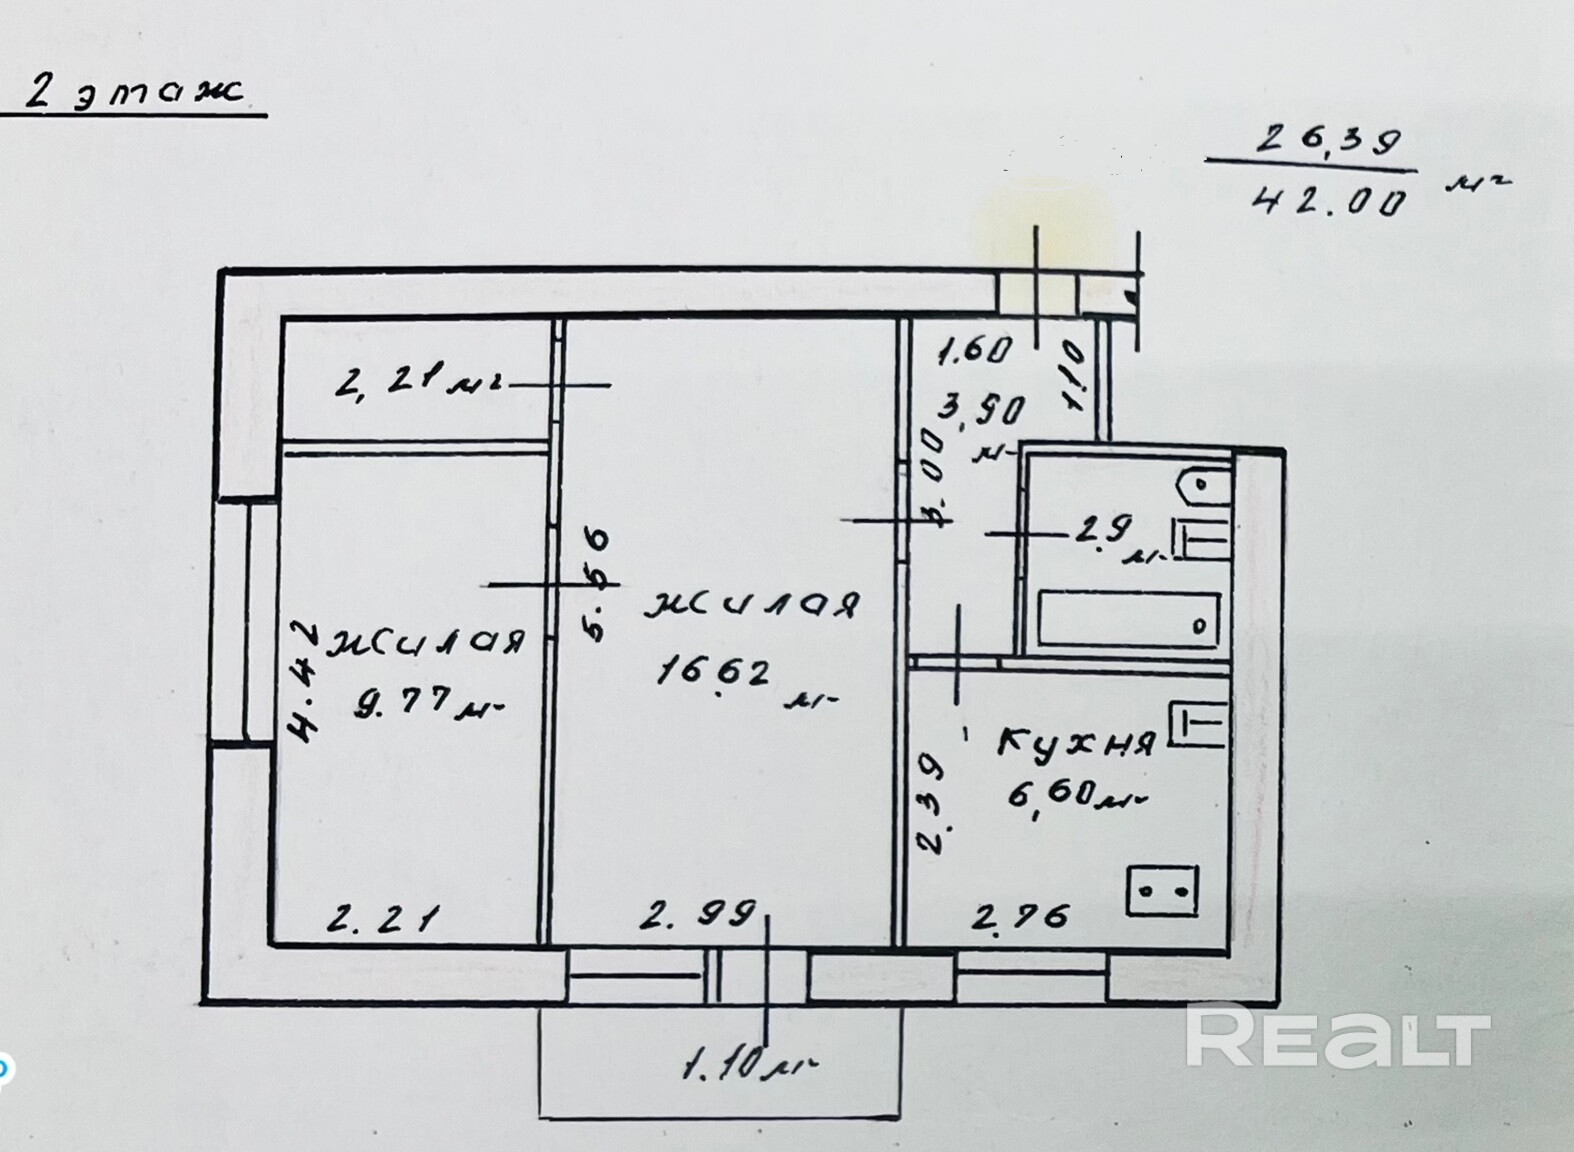 2 этаж
26,39
42.00 м²
1.60
1.10
2,21 м²
3,90
м²
3.00
2.9 м²
5.56
жилая
16.62 м²
4.42
жилая
9.77 м²
кухня
6,60 м²
2.39
2.21
2.99
2.76
1.10 м²
REALT